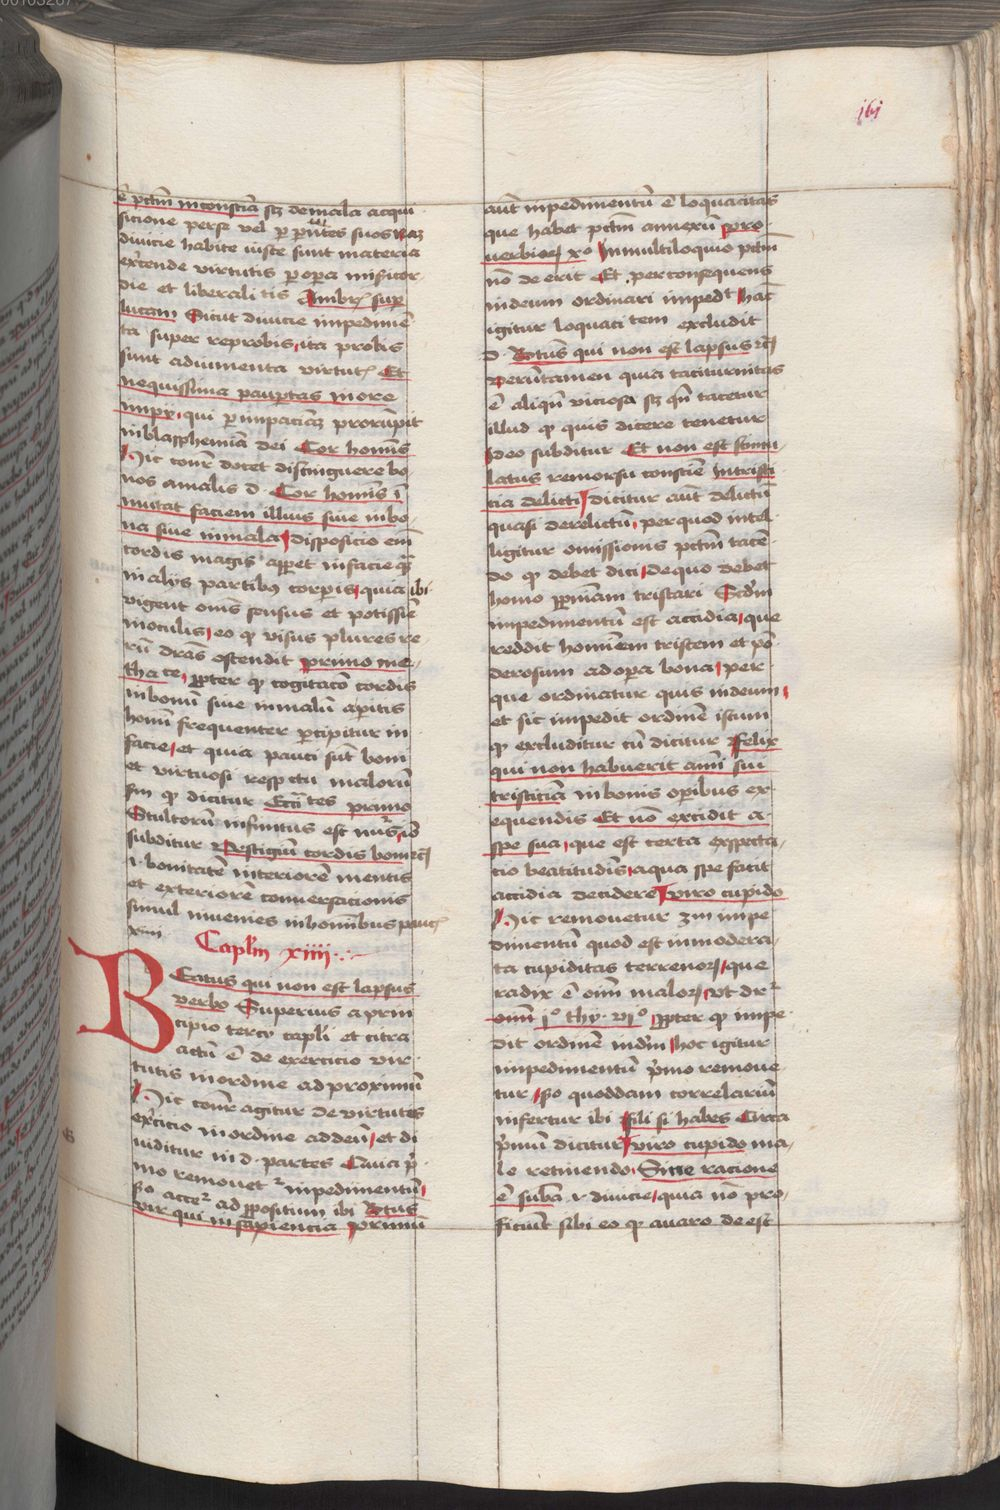 00103267
161
ē pctm̄ in consciā sꝫ de mala acqui
sicione perse vel per pntes suos
diuicie habite iuste sunt materia
exercende virtutis per opera misericor
die et liberali tis Ambrꝰ super
lucam Sicut diuicie impedimē
ta super reprobis ita probis
sunt adiumenta virtutꝭ Et
nequissima paupertas in ore
impij, qui per impacienciaꝫ prorūpit
in blasphemiā dei Cor hominis
Hic contr docet distinguere bo
nos a malis d. Cor hominis i
mutat faciem illius siue in bo
na siue in mala disposicio eni
cordis magis apparet in facie qua
in alijs partibus corporis, quia ibi
vigent oms sensus et potissime
in oculis, eo qꝫ visus plures re
rū dr̄as ostendit primo me
tha ce, propter qꝫ cogitacō cordis
in bonū siue in malū apertis
hominū frequenter percipitur in
facie, et quia pauci sūt boni
et virtuosi respctu malorū
sm qꝫ dicitur Ecc̄tes primo
Stultorū infinitus est nūs,
subditur Vestigiū cordis boni
i. bonitatē interiorē mentis
et exteriorē conuersacionis
simul inuenies in hominibus paucꝭ
xiiii
Caplm xiiii
Beatus qui non est lapsus
verbo Superius a prin
cipio tercij capli et citra
actū ē de exercicio vir
tutis in ordine ad proximū
Hic contr agitur de virtutes
exercicio in ordine ad deū, et di
uiditur in d. partes Quia pr
mo remouet impedimentū,
so acce ad propositum ibi Btus
vir qui in sapiencia primū
aūt inpedimentū ē loquacitas
que habet pctm̄ annexū pro
verbior xº In multiloquio pctm̄
nō de erit Et per consequens
in deum ordinari impedt hac
igitur loquaci tem excludit
d. Btūs qui non est lapsus
verūtamen quia taciturnitas
ē aliqn viciosa sꝫ qn tacetur
illud qꝫ quis dicere tenetur
Ideo subditur Et non est stimu
latus remorsu conscie In tristi
cia delicti, dicitur aūt delictū
quasi derelictū, per quod intel
ligitur omissionis pctm̄ tacē
do qꝫ debet dici, de quo debet
homo ppniam tristari Scdm
impedimentū est accidia, que
reddit hominem tristem et pō
derosum ad opera bona, per
que ordinatur quis in deum,
et sic impedit ordinē istum
qꝫ excluditur cū dicitur Felix
qui non habuerit animi sui
tristiciā in bonis operibus ex
equendis Et nō excidit a
spe sua, que est certa expecta
cio beatitudis, a qua spe facit
accidia decidere, viro cupido
Hic remouetur 3m impe
dimentū quod est inmodera
ta cupiditas terrenor, que
radix ē oīm malor, vt dr
omī jº thy. viº propter qꝫ impe
dit ordinē in dm hoc igitur
impedimentū prmo remoue
tur, so quoddam correlariū
infertur ibi Fili si habes Circa
primū dicitur, viro cupido ma
le retinendo, Sine racione
ē suba i. diuicie, quia nō pro
ficiūt sibi eo qꝫ auaro de est